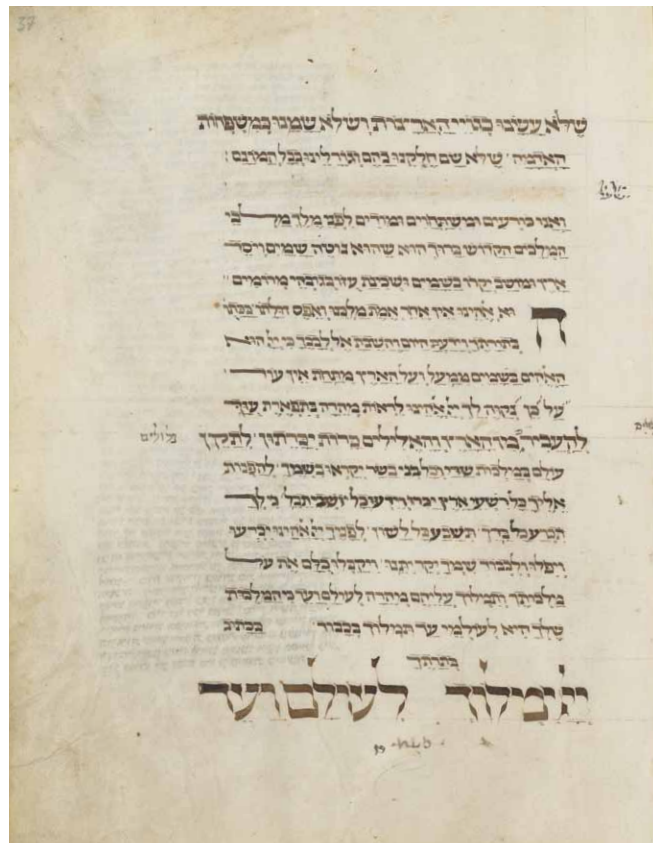 37
שלא עשנו כגויי הארצות ושלא שמנו כמשפחות
האדמה שלא שם חלקנו בהם וגורלינו ככל המונם :
ואנו כורעים ומשתחוים ומודים לפני מלך מלכי
המלכים הקדוש ברוך הוא שהוא נוטה שמים ויוסד
ארץ ומושב יקרו בשמים ושכינת עוזו בגובהי מרומים
הוא אלהינו אין אחר אמת מלכנו ואפס זולתו ככתו
בתורתך וידעת היום והשבת אל לבבך כי יי הוא
האלהים בשמים ממעל ועל הארץ מתחת אין עוד
על כן נקוה לך יי אלהינו לראות מהרה בתפארת עוזך
להעביר מן הארץ והאלילים כרות יכרתון לתקן גלולים
עולם במלכות שדי וכל בני בשר יקראו בשמך להפנות
אליך כל רשעי ארץ יכירו וידעו כל יושבי תבל כי לך
תכרע כל ברך תשבע כל לשון לפניך יי אלהינו יכרעו
ויפלו ולכבוד שמך יקר יתנו ויקבלו כולם את עול
מלכותך ותמלוך עליהם מהרה לעולם ועד כי המלכות
שלך היא לעולמי עד תמלוך בכבוד ככתוב
בתורתך
יי ימלוך לעולם ועד